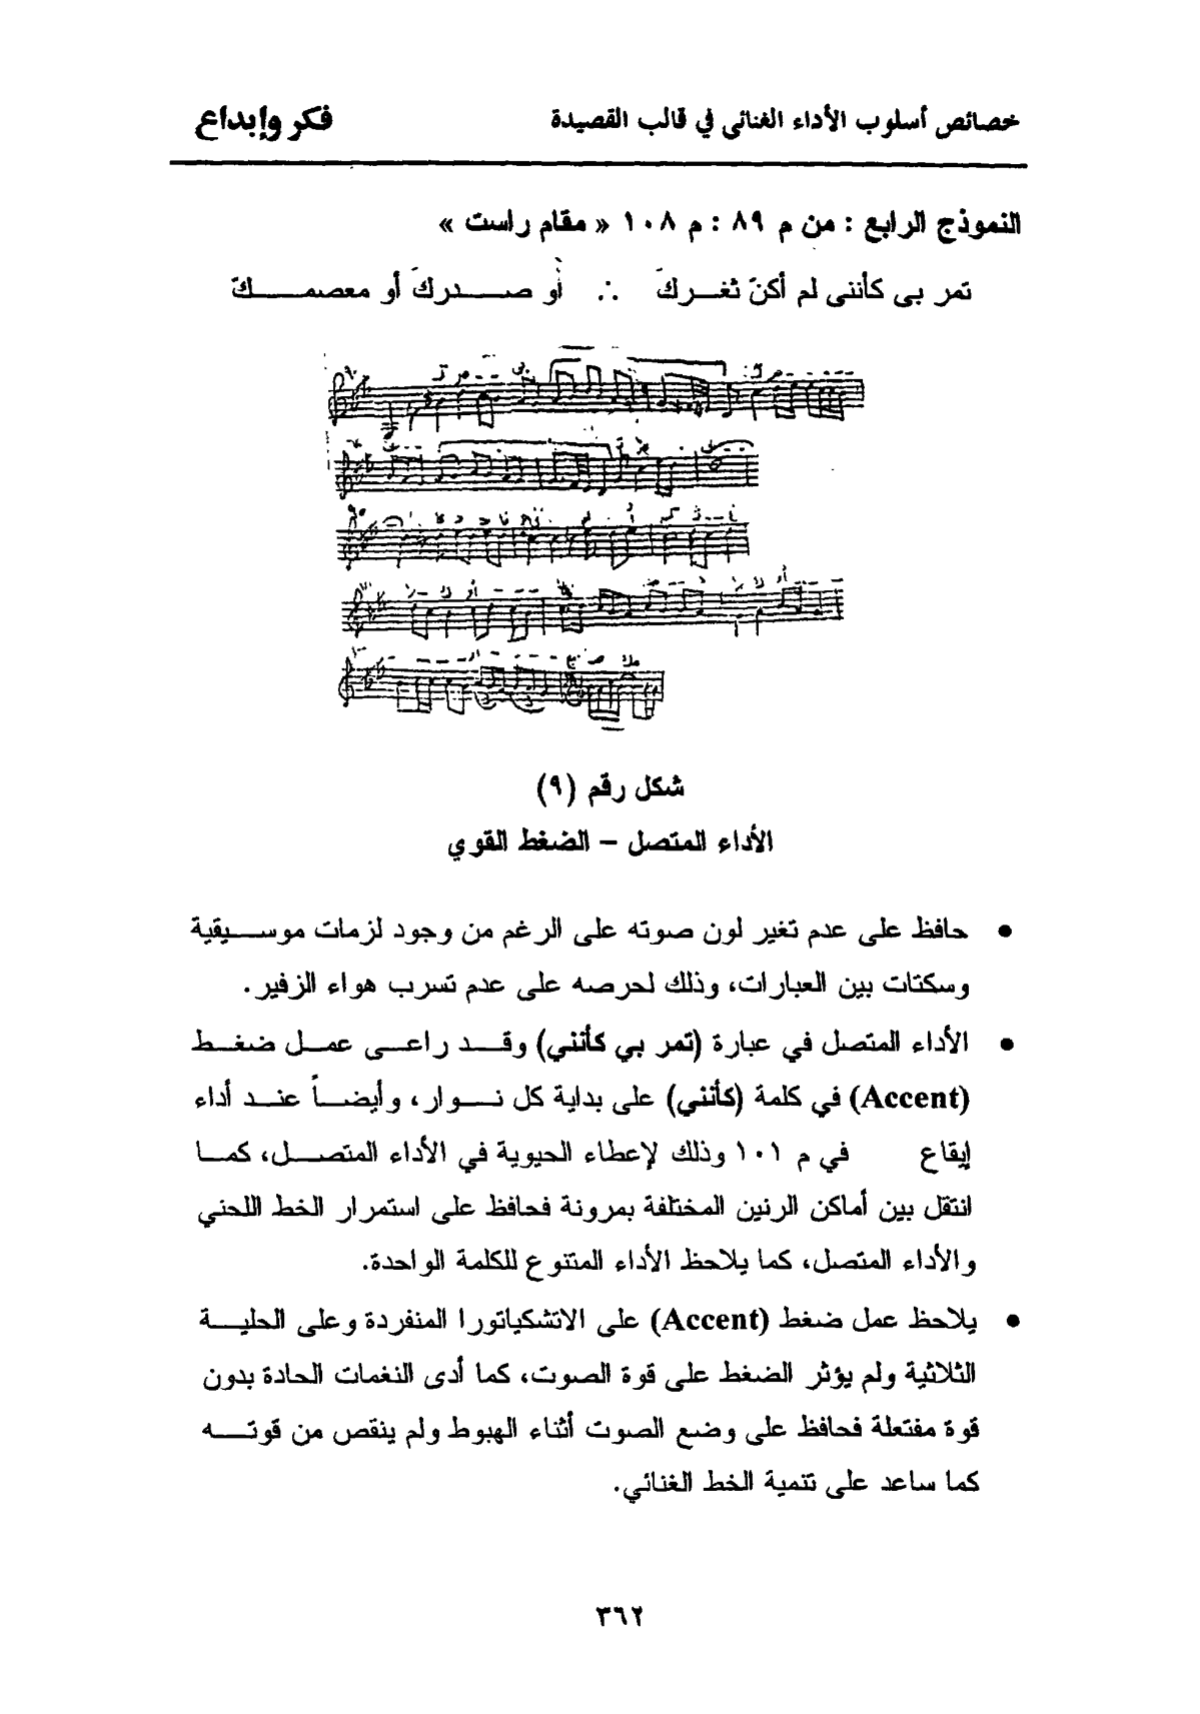 خصائص أسلوب الأداء الغنائى في قالب القصيدة فكر وإبداع
النموذج الرابع : من م ٨٩ : م ١٠٨ « مقام راست »
تمر بى كأننى لم أكنّ ثغـــركَ ∴ أو صـــــدركَ أو معصمـــــكَ
شكل رقم (٩)
الأداء المتصل – الضغط القوي
• حافظ على عدم تغير لون صوته على الرغم من وجود لزمات موســـيقية
وسكتات بين العبارات، وذلك لحرصه على عدم تسرب هواء الزفير.
• الأداء المتصل في عبارة (تمر بي كأنني) وقـــد راعـــى عمـــل ضغـــط
(Accent) في كلمة (كأنني) على بداية كل نـــوار، وأيضـــاً عنـــد أداء
إيقاع في م ١٠١ وذلك لإعطاء الحيوية في الأداء المتصـــل، كمـــا
انتقل بين أماكن الرنين المختلفة بمرونة فحافظ على استمرار الخط اللحني
والأداء المتصل، كما يلاحظ الأداء المتنوع للكلمة الواحدة.
• يلاحظ عمل ضغط (Accent) على الاتشكياتورا المنفردة وعلى الحليـــة
الثلاثية ولم يؤثر الضغط على قوة الصوت، كما أدى النغمات الحادة بدون
قوة مفتعلة فحافظ على وضع الصوت أثناء الهبوط ولم ينقص من قوتـــه
كما ساعد على تنمية الخط الغنائي.
٣٦٢